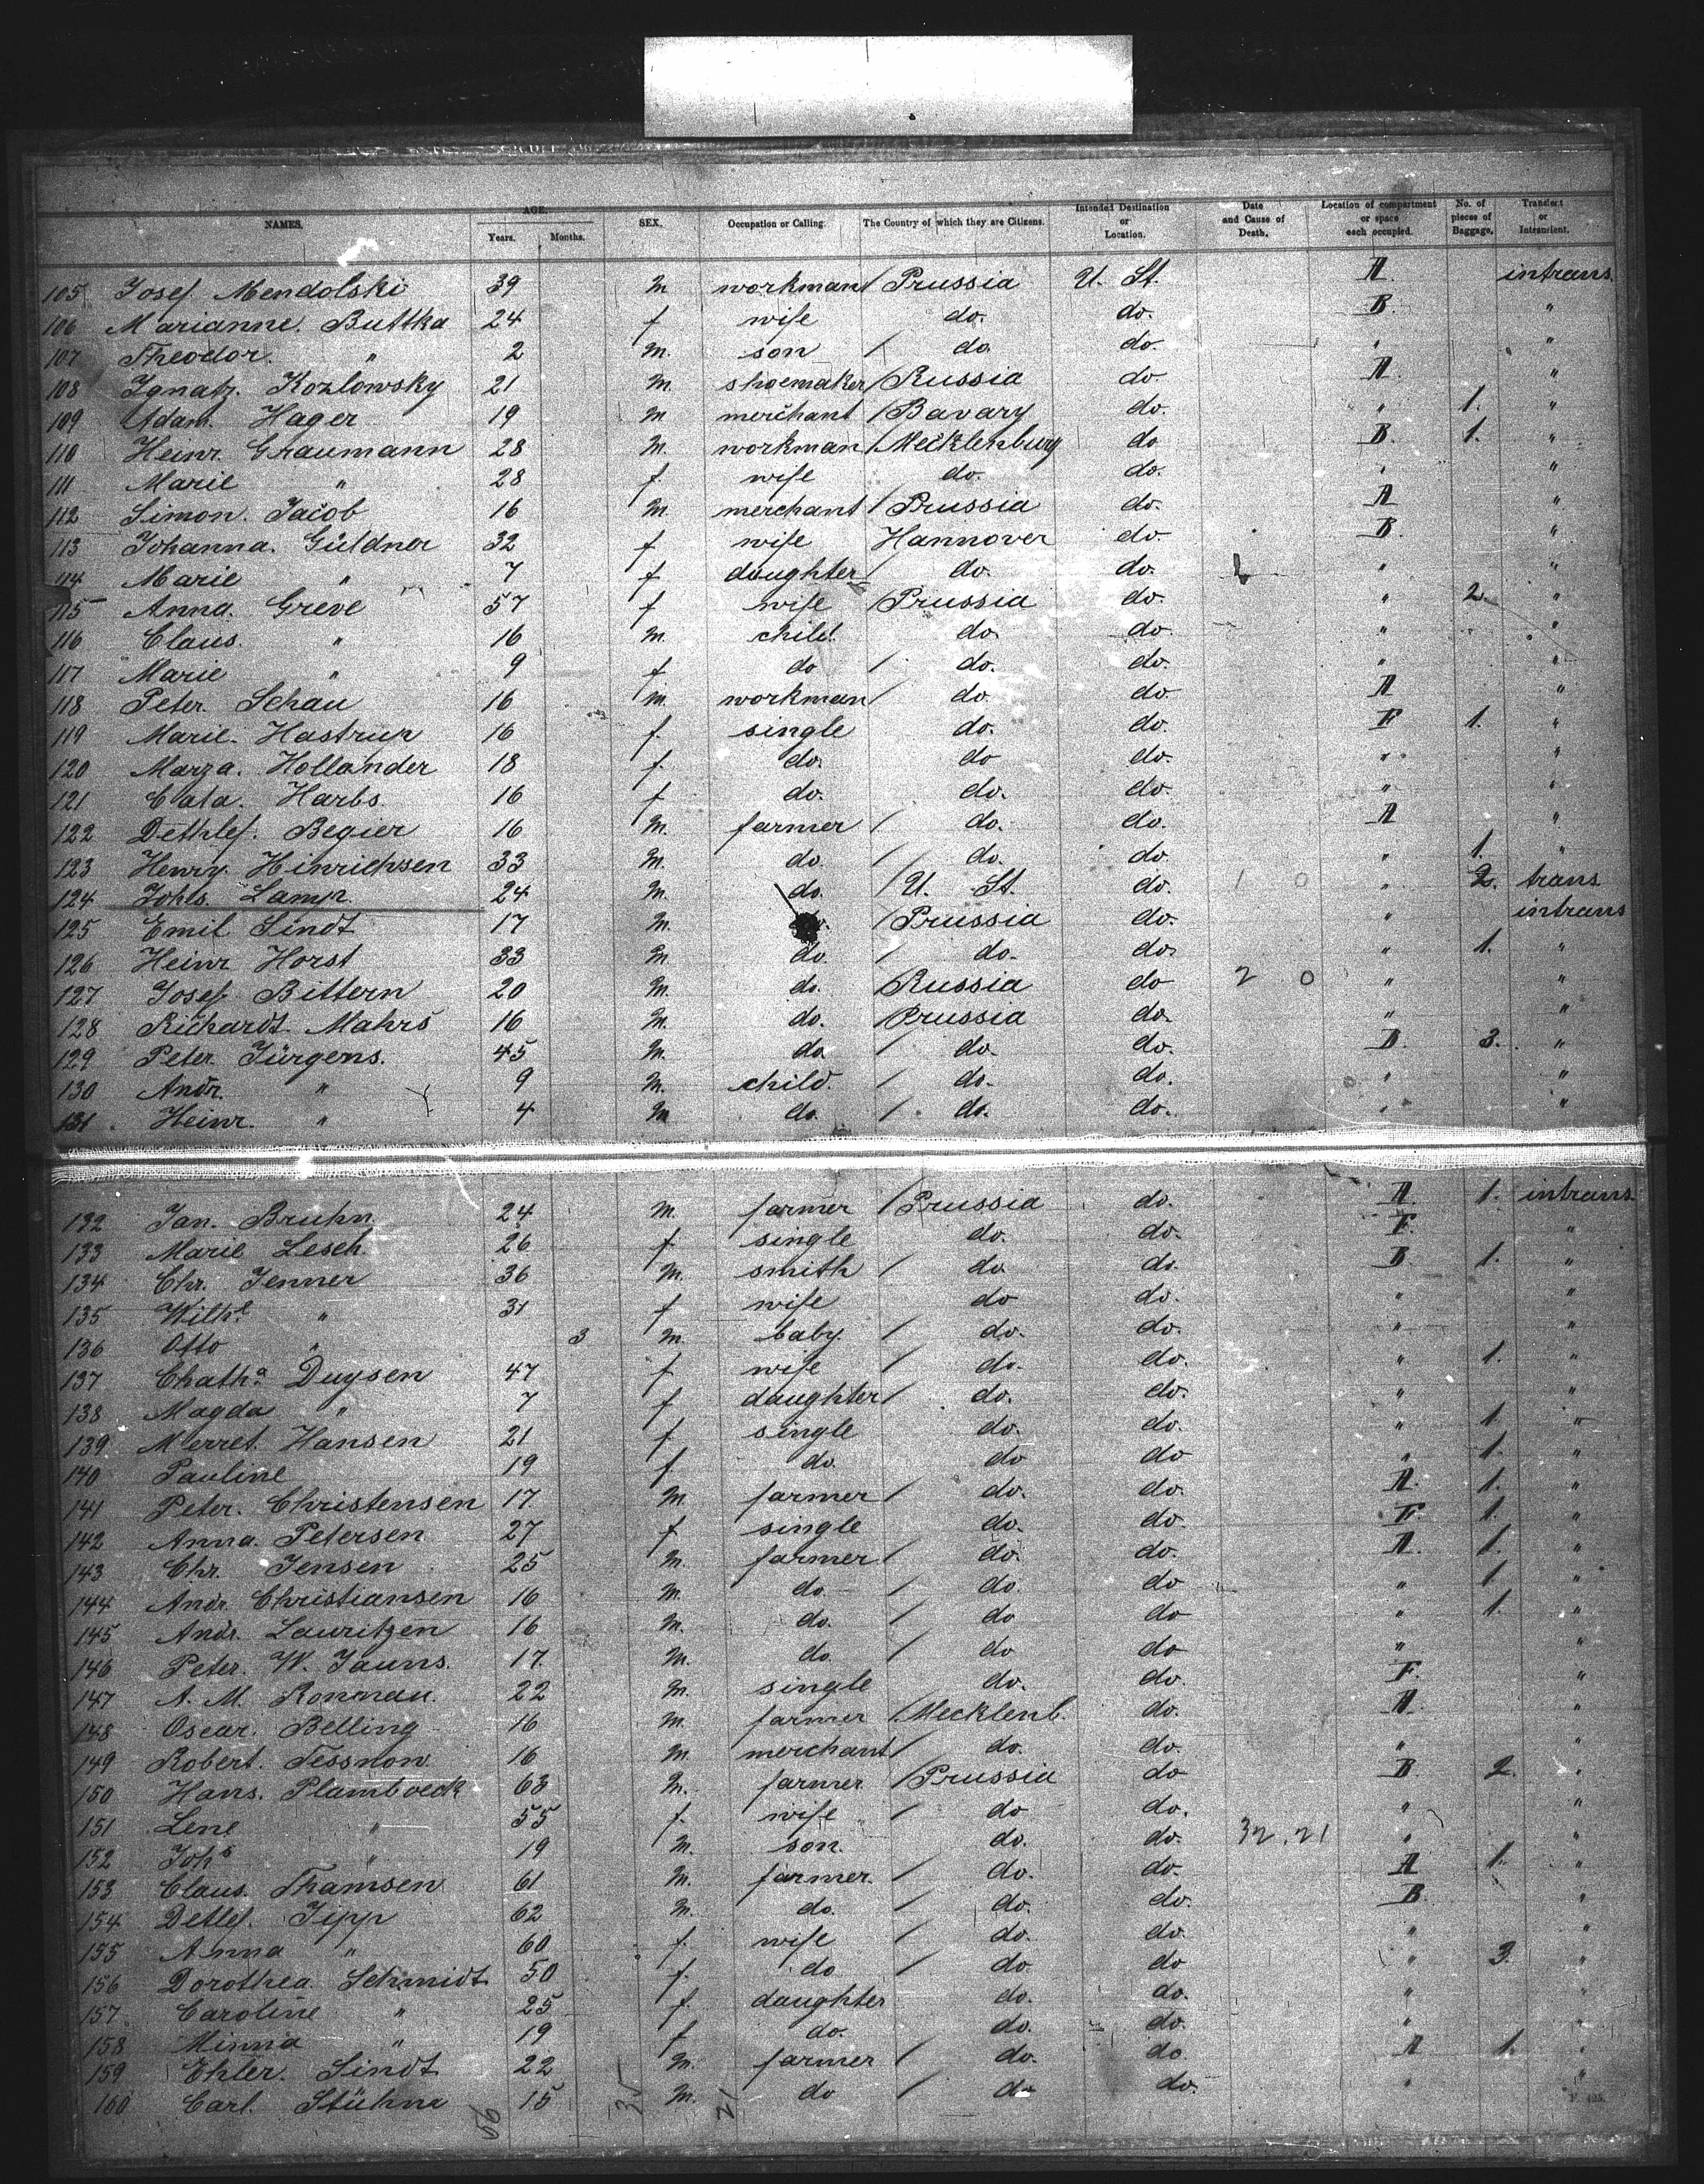 NAMES. AGE. Years. Months. SEX. Occupation or Calling. The Country of which they are Citizens. Intended Destination or Location. Date and Cause of Death. Location of compartment or space each occupied. No. of pieces of Baggage. Transient or Intransient.
105 Josef Mendolski 39 m workman / Prussia U. St. A. intrans
106 Marianne. Buttka 24 f wife do. do. B. "
107 Theodor. " 2 m. son / do do. " "
108 Ignatz. Kozlowsky 21 m. shoemaker / Russia do. A. "
109 Adam. Hager 19 m merchant / Bavary do. " 1. "
110 Heinr. Graumann 28 m. workman / Mecklenburg do B. 1. "
111 Marie " 28 f. wife do. do. " "
112 Simon. Jacob 16 m. merchant / Prussia do. A "
113 Johanna. Güldner 32 f wife Hannover do B. "
114 Marie " 7 f daughter / do. do. " "
115 Anna. Greve 57 f wife / Prussia do. " 2. "
116 Claus. " 16 m. child do. do. " "
117 Marie " 9 f do / do. do. " "
118 Peter. Schau 16 m. workman / do. do A "
119 Marie. Hastrup 16 f. single do. do. F 1. "
120 Marga. Hollander 18 f. do. do do. " "
121 Cata. Harbs 16 f do. do. do. " "
122 Dethlef. Begier 16 m. farmer / do. do. A "
123 Henry. Hinrichsen 33 m. do. / do. do " 1. "
124 Johs. Lamp. 24 m. do. / U. St. do. 1 0 " 2. trans
125 Emil Sindt 17 m. do. / Prussia do. " intrans
126 Heinr Horst 33 m. do. / do. do. " 1. "
127 Josef Bittern 20 m. do. / Russia do 2 0 " "
128 Richardt Mahrs 16 m. do. / Prussia do. " "
129 Peter. Jürgens. 45 m. do / do. do. B. 3. "
130 Andr. " 9 m. child. / do. do. " "
131 Heinr. " 4 m do. / do. do. " "
132 Jan. Bruhn 24 m. farmer / Prussia do. A. 1. intrans
133 Marie Lesch. 26 f single do. do. F. "
134 Chr. Jenner 36 m. smith / do do. B 1. "
135 Wilhe " 31 f wife do do. " "
136 Otto " 3 m. baby. / do. do. " "
137 Chatha. Duysen 47 f wife / do. do. " 1. "
138 Magda " 7 f daughter / do. do. " "
139 Merret. Hansen 21 f single do. do. " 1. "
140 Pauline 19 f do. do do " 1. "
141 Peter. Christensen 17 m. farmer / do. do. A. 1. "
142 Anna. Petersen 27 f single do. do. F. 1. "
143 Chr. Jensen 25 m. farmer / do. do. A. 1. "
144 Andr. Christiansen 16 m. do. / do. do " 1. "
145 Andr. Lauritzen 16 m. do. / do do " 1. "
146 Peter. W. Jauns. 17. m. do. / do do " "
147 A. M. Ronnau. 22 m. single do. do. F. "
148 Oscar. Belling 16 m. farmer / Mecklenb. do. A. "
149 Robert. Tessnow. 16 m. merchant / do. do. " "
150 Hans. Plamboeck 63 m. farmer / Prussia do B. 2. "
151 Lene " 55 f. wife / do do. " "
152 Johs " 19 m. son. do. do. 32.21 " "
153 Claus. Thamsen 61 m. farmer. / do. do. A 1. "
154 Detlef. Jipp 62 m. do. / do. do. B. "
155 Anna " 60 f. wife / do. do. " "
156 Dorothea. Schmidt 50 f. do / do do " 3. "
157 Caroline " 25 f. daughter do. do. " "
158 Minna " 19 f do. do. do. " "
159 Ehler. Sindt 22 m. farmer / do. do A 1. "
160 Carl. Stühne 15 m. do / do do. " "
56 35 21